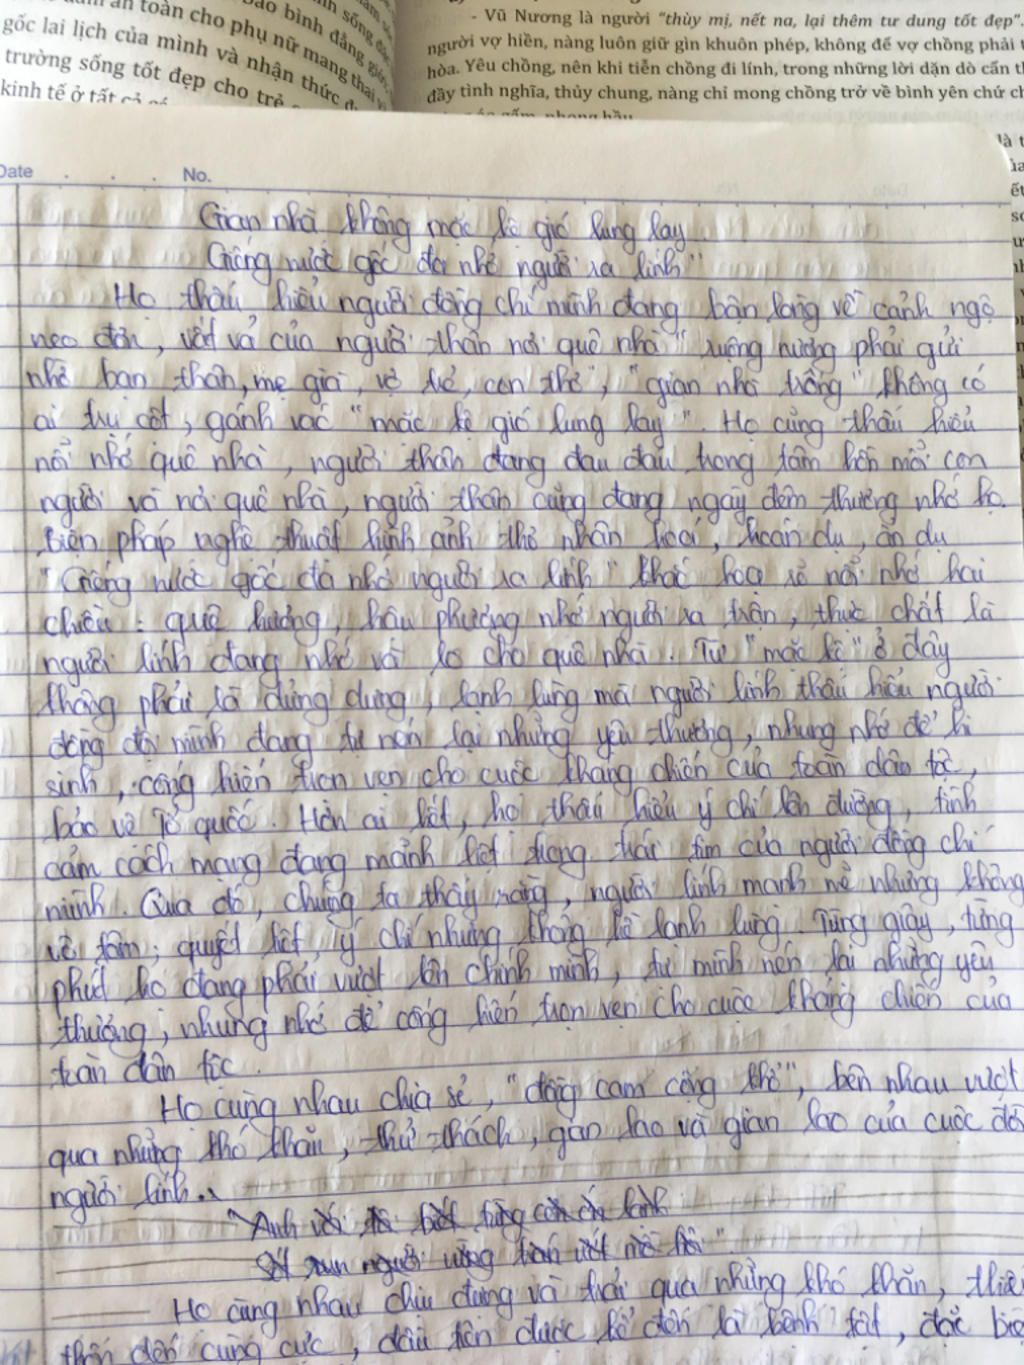 toàn cho phụ nữ mang thai
gốc lai lịch của mình và nhận thức
trường sống tốt đẹp cho trẻ
kinh tế ở tất cả
bảo bình đẳng giới,
- Vũ Nương là người "thùy mị, nết na, lại thêm tư dung tốt đẹp".
người vợ hiền, nàng luôn giữ gìn khuôn phép, không để vợ chồng phải
hòa. Yêu chồng, nên khi tiễn chồng đi lính, trong những lời dặn dò cẩn
đầy tình nghĩa, thủy chung, nàng chỉ mong chồng trở về bình yên chứ
Date . . . No.
Gian nhà không mặc kệ gió lung lay
Giếng nước gốc đa nhớ người ra lính"
Họ thấu hiểu người đồng chí mình đang bận lòng về cảnh ngộ
neo đơn, vất vả của người thân nơi quê nhà "ruộng nương phải gửi
nhờ bạn thân, mẹ già, vợ trẻ, con thơ", "gian nhà trống" không có
ai trụ cột, gánh vác "mặc kệ gió lung lay". Họ cùng thấu hiểu
nỗi nhớ quê nhà, người thân đang đau đáu trong tâm hồn mỗi con
người và nơi quê nhà, người thân cũng đang ngày đêm thương nhớ họ.
Biện pháp nghệ thuật hình ảnh thơ nhân hoá, hoán dụ, ẩn dụ
"Giếng nước gốc đa nhớ người ra lính" khắc hoạ rõ nỗi nhớ hai
chiều: quê hương, hậu phương nhớ người ra trận, thực chất là
người lính đang nhớ và lo cho quê nhà. Từ "mặc kệ" ở đây
không phải là dửng dưng, lạnh lùng mà người lính thấu hiểu người
đồng đội mình đang tự nén lại những yêu thương, nhung nhớ để hi
sinh, cống hiến trọn vẹn cho cuộc kháng chiến của toàn dân tộc,
bảo vệ Tổ quốc. Hơn ai hết, họ thấu hiểu ý chí lên đường, tình
cảm cách mạng đang mãnh liệt trong trái tim của người đồng chí
mình. Qua đó, chúng ta thấy rằng, người lính mạnh mẽ nhưng không
vô tâm; quyết liệt, ý chí nhưng không hề lạnh lùng. Từng giây, từng
phút họ đang phải vượt lên chính mình, tự mình nén lại những yêu
thương, nhung nhớ để cống hiến trọn vẹn cho cuộc kháng chiến của
toàn dân tộc.
Họ cùng nhau chia sẻ, "đồng cam cộng khổ", bên nhau vượt
qua những khó khăn, thử thách, gan lao và gian lao của cuộc đời
người lính.
"Anh với tôi biết từng cơn ớn lạnh
Sốt run người vừng trán ướt mồ hôi"
Họ cùng nhau chịu đựng và trải qua những khó khăn, thiếu
thốn đến cùng cực, đầu tiên được kể đến là bệnh tật, đặc